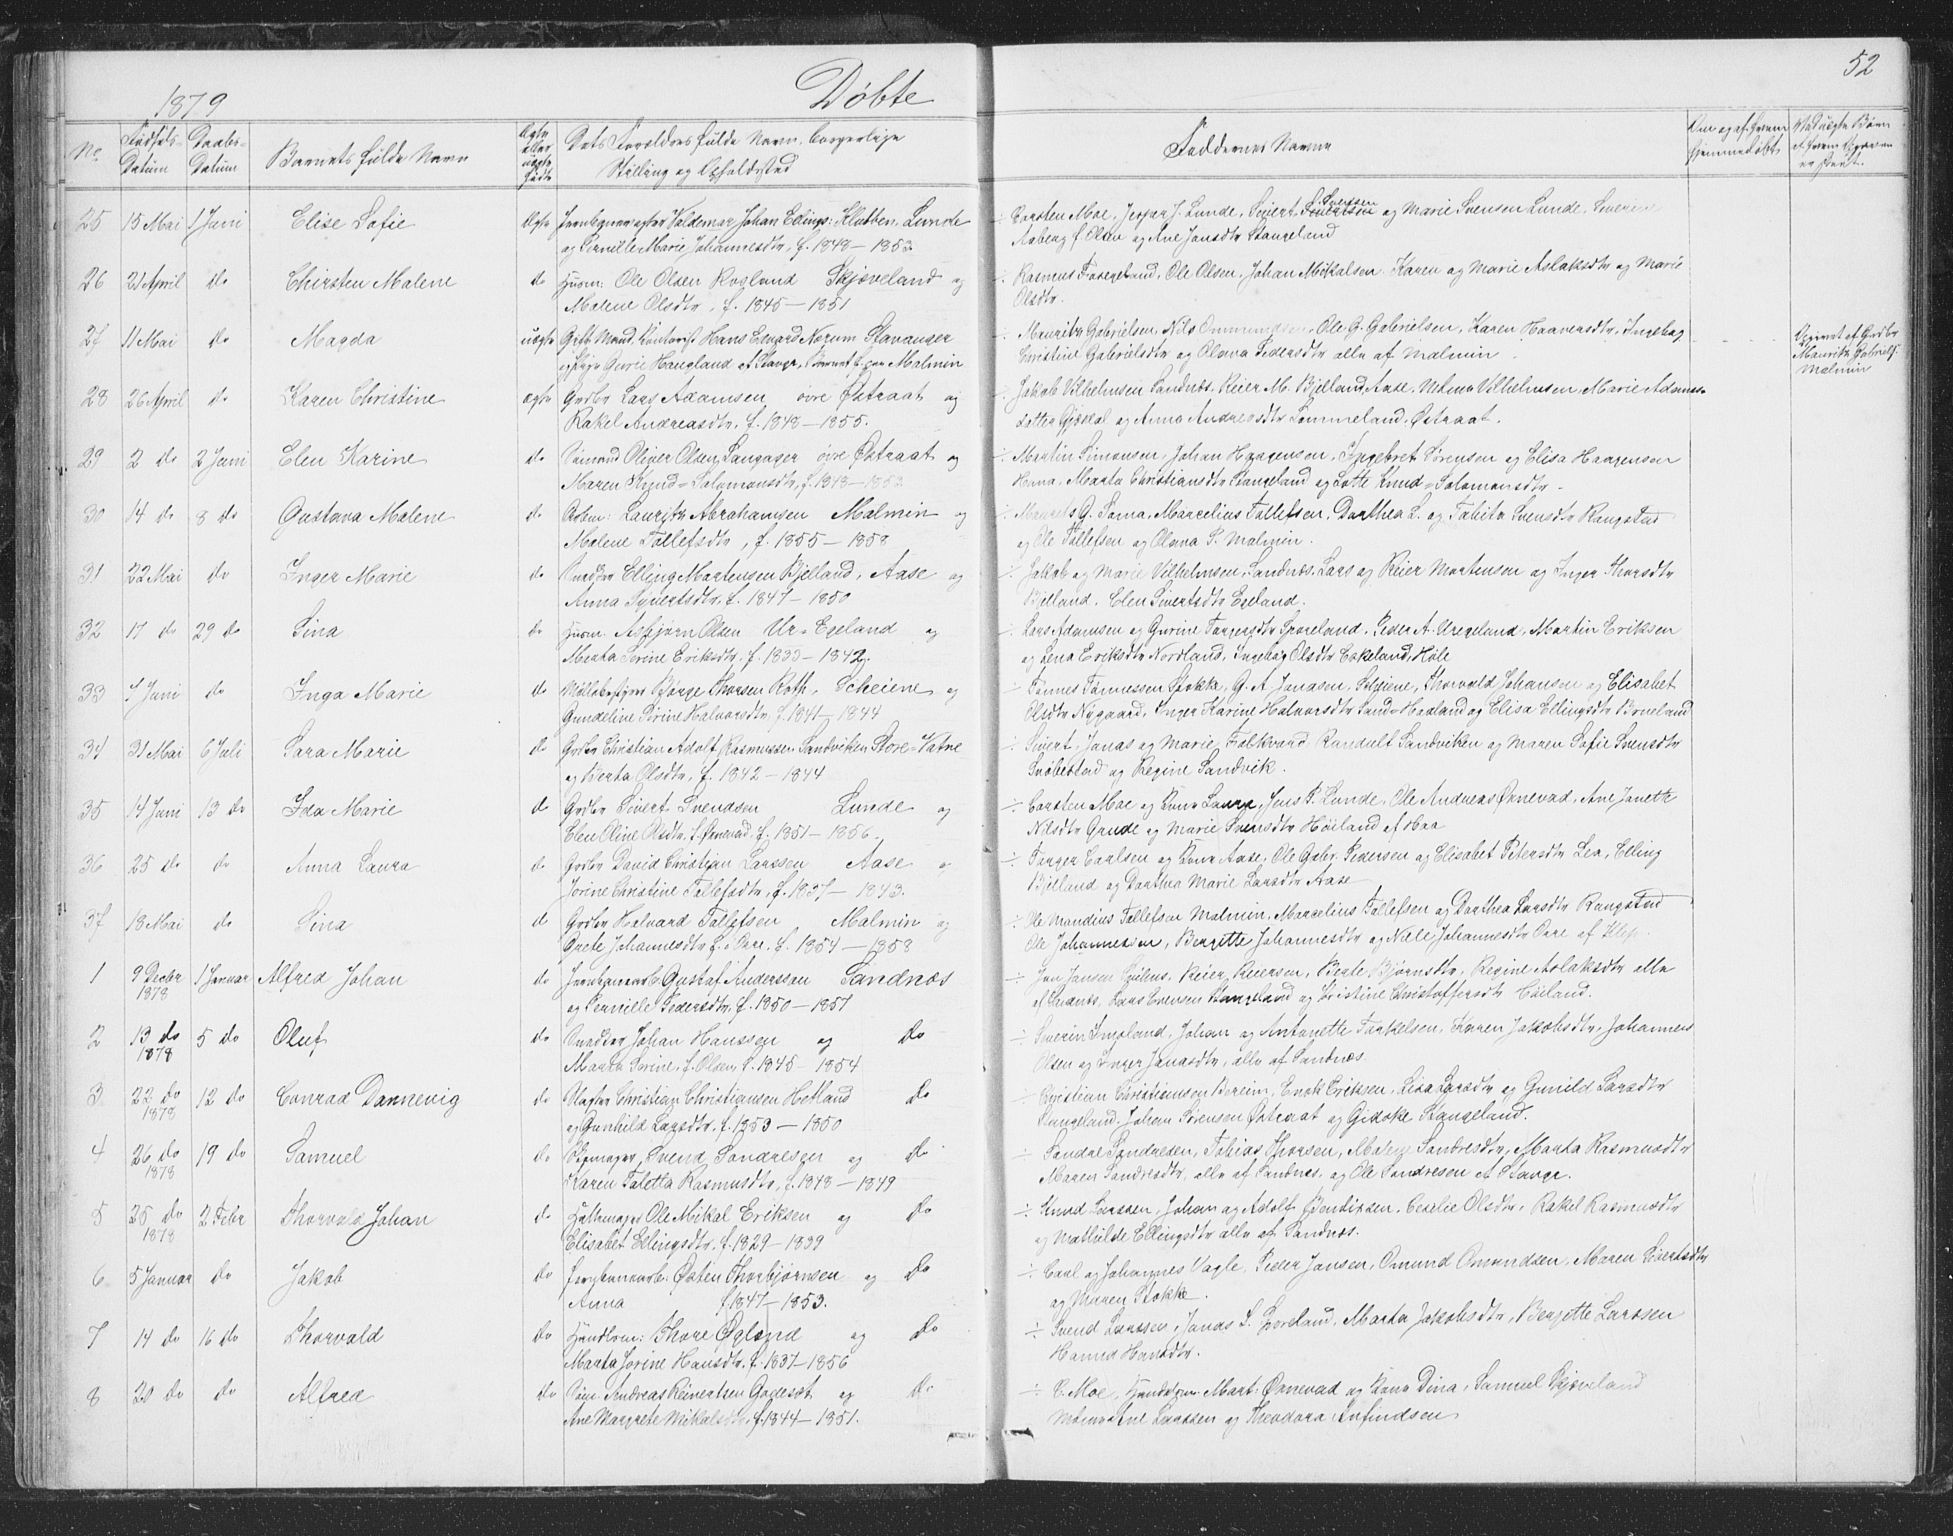 1879
Døbte
52
No.
Fødsels-
Datum
Daabs-
Datum
Barnets fulde Navn
Ægte
eller
uægte
født
Dets Forældres fulde Navn, borgerlige
Stilling og Opholdssted
Faddernes Navne
25 15 Mai 1 Juni Elise Sofie Ægte Valdemar Johan Klubben, Lunde
og Pernille Marie Johannesdtr, f. 1848 – 1853
÷ Carsten Moe, Jesper J. Lunde, Sivert S. Svensen og Marie Svensen Lunde,
Aaberg f. Olsen og Ane Jansdtr Stangeland
26 21 April do Chirsten Malene do Husm: Ole Olsen Rogland Skjæveland og
Malene Olsdtr, f. 1845 – 1851
÷ Rasmus Foregeland, Ole Olsen, Johan Mikalsen, Karen og Marie Aslaksdtr og Marie
Olsdtr.
27 11 Mai do Magda uægte Gift Mand, Kontorist Hans Edvard Norum Stavanger
og Pige Gurie Haugland af Stavgr, Barnet f. paa Malmin
÷ Mauritz Gabrielsen, Nils Ommundsen, Ole G. Gabrielsen, Karen Haaversdtr, Ingebog
Christine Gabrielsdtr og Olava Pedersdtr alle af Malmin
Opgivet af Grdbr
Mauritz Gabriels:
Malmin
28 26 April do Karen Christine ægte Grdbr Lars Adamsen øvre Østraat og
Rakel Andreasdtr, f. 1848 – 1855.
÷ Jakob Vilhelmsen Sandnæs, Reier M. Bjelland, Aase, Vilhelmsen, Marie Adams-
datter Gjæsdal og Anna Andreasdtr Sømmeland, Østraat.
29 2 do 2 Juni Elen Karine do Sømand Oliver Olsen Langager øvre Østraat og
Maren Knud-Salomonsdtr, f. 1848 – 1853
÷ Martin Simonsen, Johan Haagensen, Ingebret Sørensen og Elisa Haagensen
Hana, Marta Christiansdtr Stangeland og Lotte Knud-Salomonsdtr –
30 14 do 8 do Gustava Malene do Arbm: Lauritz Abrahamsen Malmin og
Malene Tollefsdtr, f. 1855 – 1858
÷ G. Soma, Marcelius Tollefsen, Dorthea L. og Tabita Svensdtr Kangstad
og Ole Tollefsen og Olava P. Malmin.
31 22 Mai do Inger Marie do Snedker Elling Martensen Bjelland, Aase og
Anna Sivertsdtr f. 1847 – 1850
÷ Jakob og Marie Vilhelmsen, Sandnæs, Lars og Reier Mortensen og Inger Thorsdtr
Bjelland. Elen Sivertsdtr Egeland.
32 17 do 29 do Sina do Husm. Asbjørn Olsen Ur-Egeland og
Marta Serine Eriksdtr f. 1833 – 1842.
÷ Lars Adamsen og Gurine Torgersdtr, Peder A. Uregeland, Martin Eriksen
og Lena Eriksdtr Nordland, Ingebog Olsdtr Eskeland, Høle
33 7 Juni do Inga Marie do Møllebestyrer Børge Thorsen Roth, Scheiene og
Gundeline Serine Halvorsdtr, f. 1841 – 1844
÷ Tønnes Tønnessen Stokke, G. A. Jonasen, Scheiene, Thorvald Johansen og Elisabet
Olsdtr Nygaard, Inger Karine Halvorsdtr Sand-Haaland og Elisa Ellingsdtr Brueland
34 31 Mai 6 Juli Sara Marie do Grdbr Christian Adolf Rasmussen Sandviken Store-Vatne
og Berta Olsdtr, f. 1842 – 1844
÷ Sivert, Jonas og Marie, Folkvard Randulf Sandviken og Maren Sofie Svensdtr
og Regine Sandvik.
35 14 Juni 13 do Ida Marie do Grdbr Sivert Svendsen Lunde og
Elen Oline Olsdtr, f. Ørnevad, f. 1851 – 1856.
÷ Carsten Moe og Kone Laura, Jens P. Lunde, Ole Andreas Ørnevad, Ane Janette
Nilsdtr Grude og Marie Svensdtr Høiland af Haa
36 25 do do Anna Laura do Grdbr David Christian Larssen Aase og
Jorine Christine Tollefsdtr, f. 1837 – 1843.
÷ Torger Carlsen og Kone Aase, Ole Gabr. Pedersen og Elisabet Petersdtr Lea, Elling
Bjelland og Dorthea Marie Larsdtr Aase
37 18 Mai do Sina do Grdbr Halvard Tollefsen Malmin og
Grete Johannesdtr f. Orre, f. 1854 – 1858
÷ Ole Mandius Tollefsen Malmin, Marcelius Tollefsen og Dorthea Larsdtr Rangstad
Ole Johannessen, Bergitte Johannesdtr og Nille Johannesdtr Orre af Klep.
1 9 Decbr 1878 1 Januar Alfred Johan do Gustaf Anderssen Sandnæs
og Pernille Pedersdtr, f. 1850 – 1857
÷ Jan Jansen, Reier Reiersen, Berte Bjørnsdtr, Regine Aslaksdtr alle
af Sandnes, Lars Evensen Stangeland og Kristine Christoffersdtr
2 13 do 1878 5 do Oluf do Snedker Johan Hanssen og Do
Marta Serine, f. Olsen, f. 1845 – 1854
÷ Severin, Johan og Antonette Torkelsen, Karen Jakobsdtr, Johannes
Olsen og Inger Jonasdtr, alle af Sandnæs
3 22 do 1878 12 do Conrad Dannevig do Slagter Christian Christiansen Hetland Do
og Gunhild Larsdtr, f. 1853 – 1850
÷ Christian Christiansen, Enok Eriksen, Lisa Larsdtr og Gunild Larsdtr
Stangeland, Johan Sørensen Østraat og Gidske Stangeland.
4 26 do 1878 19 do Samuel do Svend Sandresen og Do
Karen Taletta Rasmusdtr, f. 1848 – 1849
÷ Sandal Sandresen, Tobias Thorsen, Malene Sandresdtr, Marta Rasmusdtr
Maren Sandresdtr, alle af Sandnes, og Ole Sandresen af Stavgr.
5 25 do 1878 2 Febr Thorvald Johan do Ole Mikal Eriksen og Do
Elisabet Ellingsdtr, f. 1829 – 1839
÷ Knud Larssen, Johan og Adolf Bendixsen, Cecelie Olsdtr, Rakel Rasmusdtr
og Mathilde Ellingsdtr alle af Sandnæs.
6 5 Januar do Jakob do Østen Thorbjørnsen og Do
Anna f. 1847 – 1853.
÷ Carl og Johannes Vagle, Peder Jansen, Omund Omundsen, Maren Sivertsdtr
og Maren Stokke.
7 14 do 16 do Thorvald do Handlsm: Thore Øgland og Do
Marta Jorine Hansdtr, f. 1837 – 1856
÷ Svend Larssen, Jonas S., Marta Jakobsdtr, Bergitte Larssen
Hanna Hansdtr.
8 20 do do Alfred do Søm: Andreas Reinertsen Godeset og Do
Ane Margrete Mikalsdtr, f. 1844 – 1851.
÷ C. Moe, Handelsm. Mart: Ørnevad og Kone Dina, Samuel Skjæveland
Ane Larssen og Theodora Arfindsen